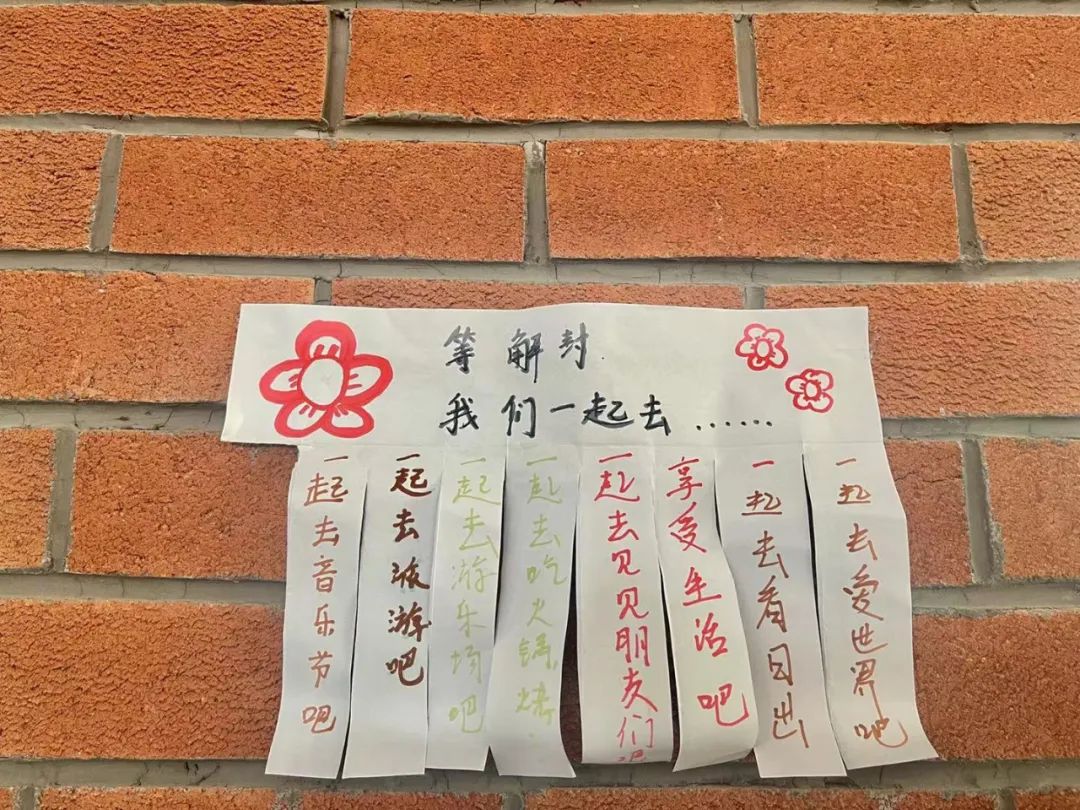 等解封
我们一起去......
一起去音乐节吧
一起去旅游吧
一起去游乐场吧
一起去吃火锅,烤
一起去见见朋友们吧
享受生活吧
一起去看日出
一起去爱世界吧